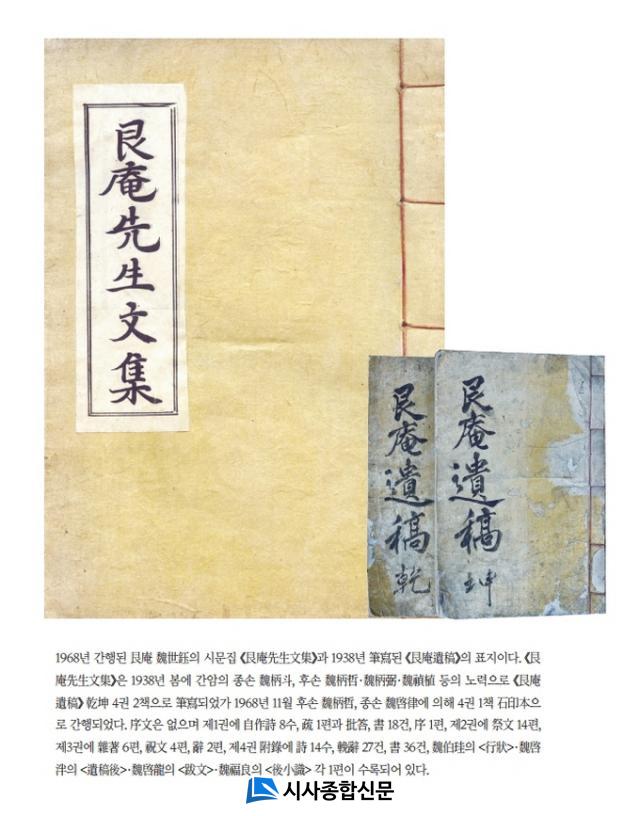 艮庵先生文集
艮庵遺稿 乾
艮庵遺稿 坤
1968년 간행된 艮庵 魏世鈺의 시문집 《艮庵先生文集》과 1938년 筆寫된 《艮庵遺稿》의 표지이다. 《艮
庵先生文集》은 1938년 봄에 간암의 종손 魏柄斗, 후손 魏柄哲·魏柄弼·魏禎植 등의 노력으로 《艮庵
遺稿》 乾坤 4권 2책으로 筆寫되었가 1968년 11월 후손 魏柄哲, 종손 魏啓律에 의해 4권 1책 石印本으
로 간행되었다. 序文은 없으며 제1권에 自作詩 8수, 疏 1편과 批答, 書 18건, 序 1편, 제2권에 祭文 14편,
제3권에 雜著 6편, 祝文 4편, 辭 2편, 제4권 附錄에 詩 14수, 輓辭 27건, 書 36건, 魏伯珪의 <行狀>·魏啓
泮의 <遺稿後>·魏啓龍의 <跋文>·魏福良의 <後小識> 각 1편이 수록되어 있다.
시사종합신문